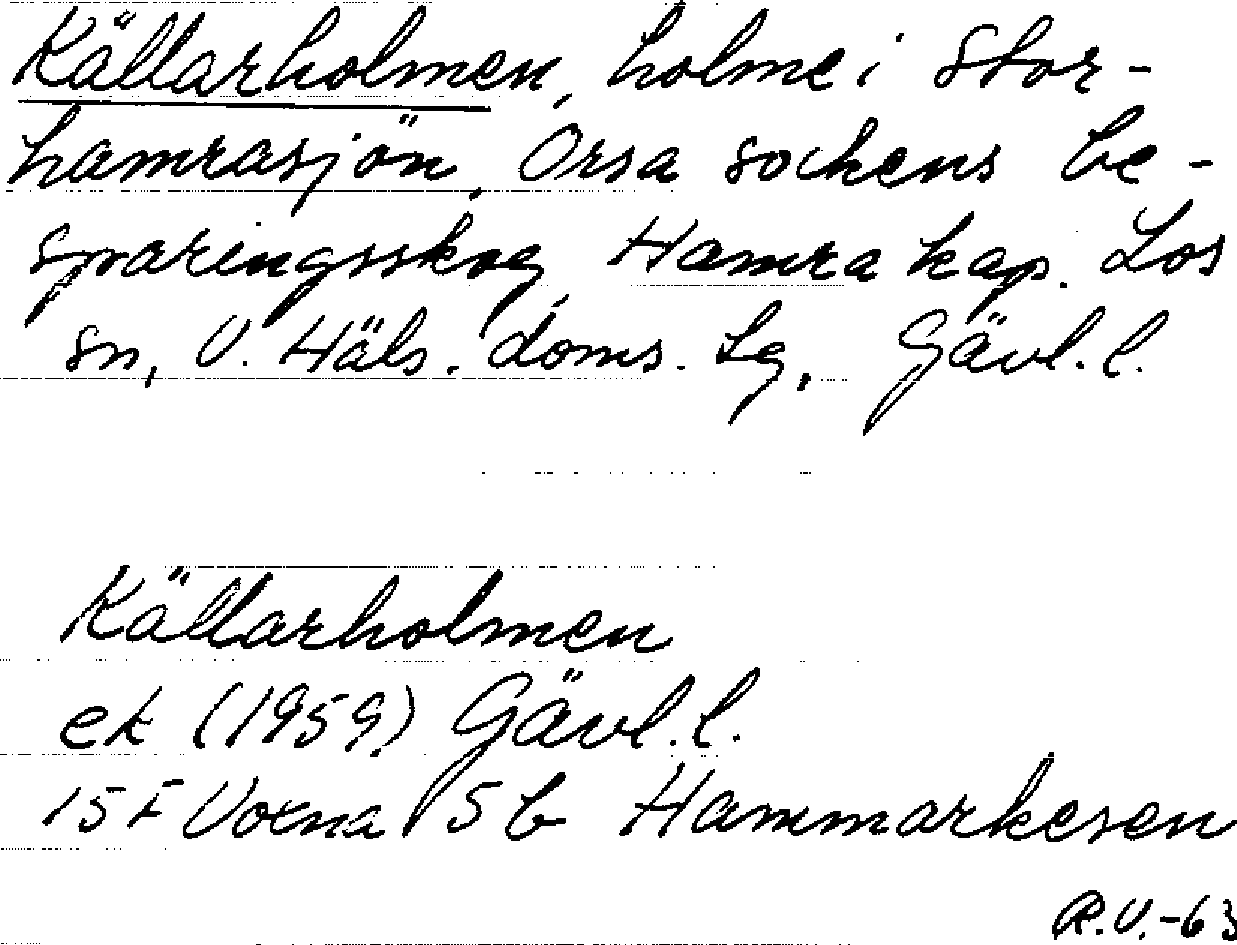 Källarholmen, holme i Stor-
hamrasjön, Orsa sockens be-
sparingsskog, Hamra kap. Los
sn, V. Häls. doms. lg, Gävl. l.
Källarholmen
ek (1959) Gävl. l.
15F Voxna 5b Hammarkesen
R.V.-63